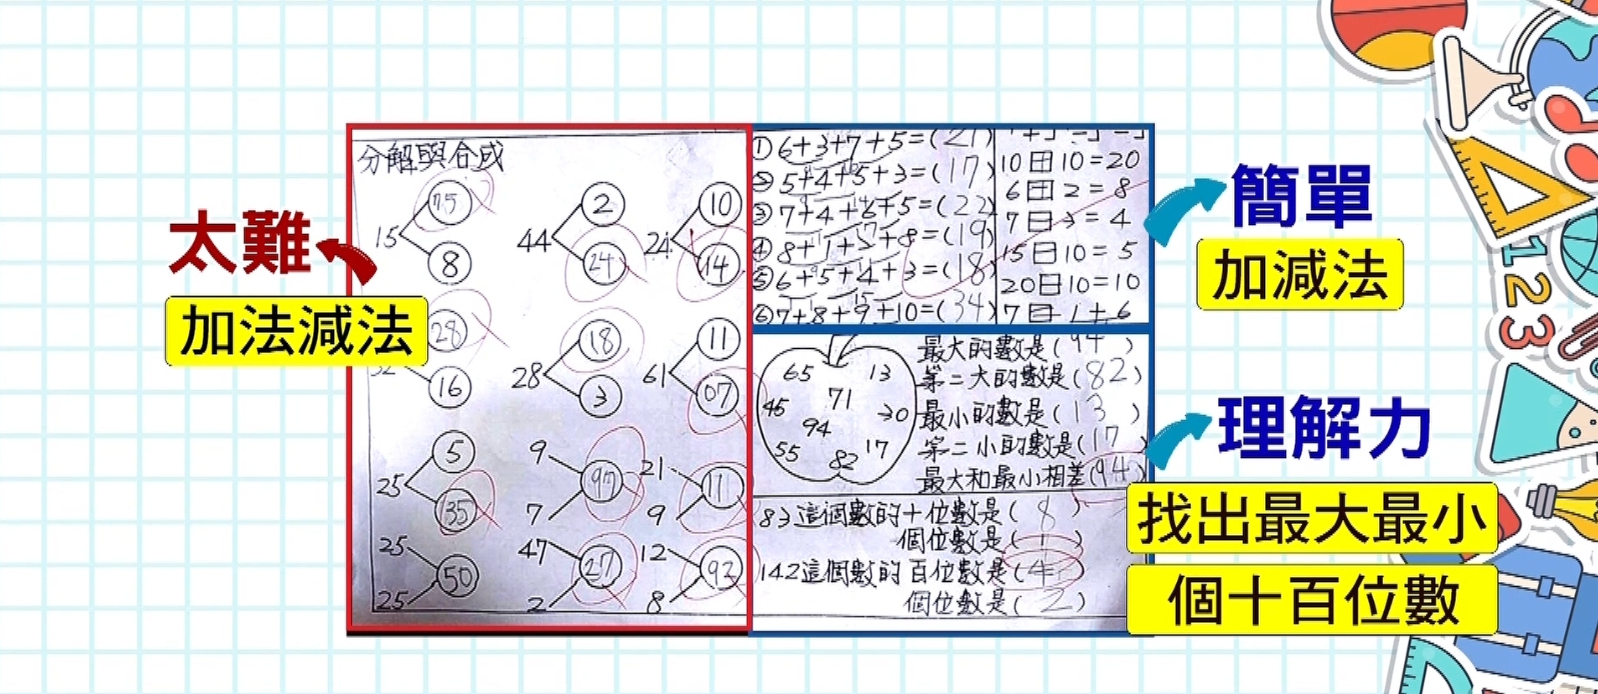 太難
加法減法
簡單
加減法
理解力
找出最大最小
個十百位數
123
分解與合成
15 8
44 2 24
24 10 14
28
16
28 18 3
61 11 07
25 5 35
9 7
21 9 11
25 25 50
47 2 27
12 8 92
①6+3+7+5=(21)
②5+4+5+3=(17)
③7+4+6+5=(22)
④8+1+5+8=(19)
⑤6+5+4+3=(18)
⑥7+8+9+10=(34)
10田10=20
6田2=8
7日3=4
15日10=5
20日10=10
7日1=6
65 13
45 71 30
94
55 82 17
最大的數是(94)
第二大的數是(82)
最小的數是(13)
第二小的數是(17
最大和最小相差(94)
83這個數的十位數是(8)
個位數是( )
142這個數的百位數是(4)
個位數是(2)